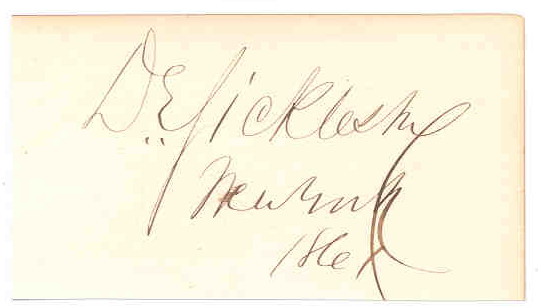 D.E. Sickles
New York
186